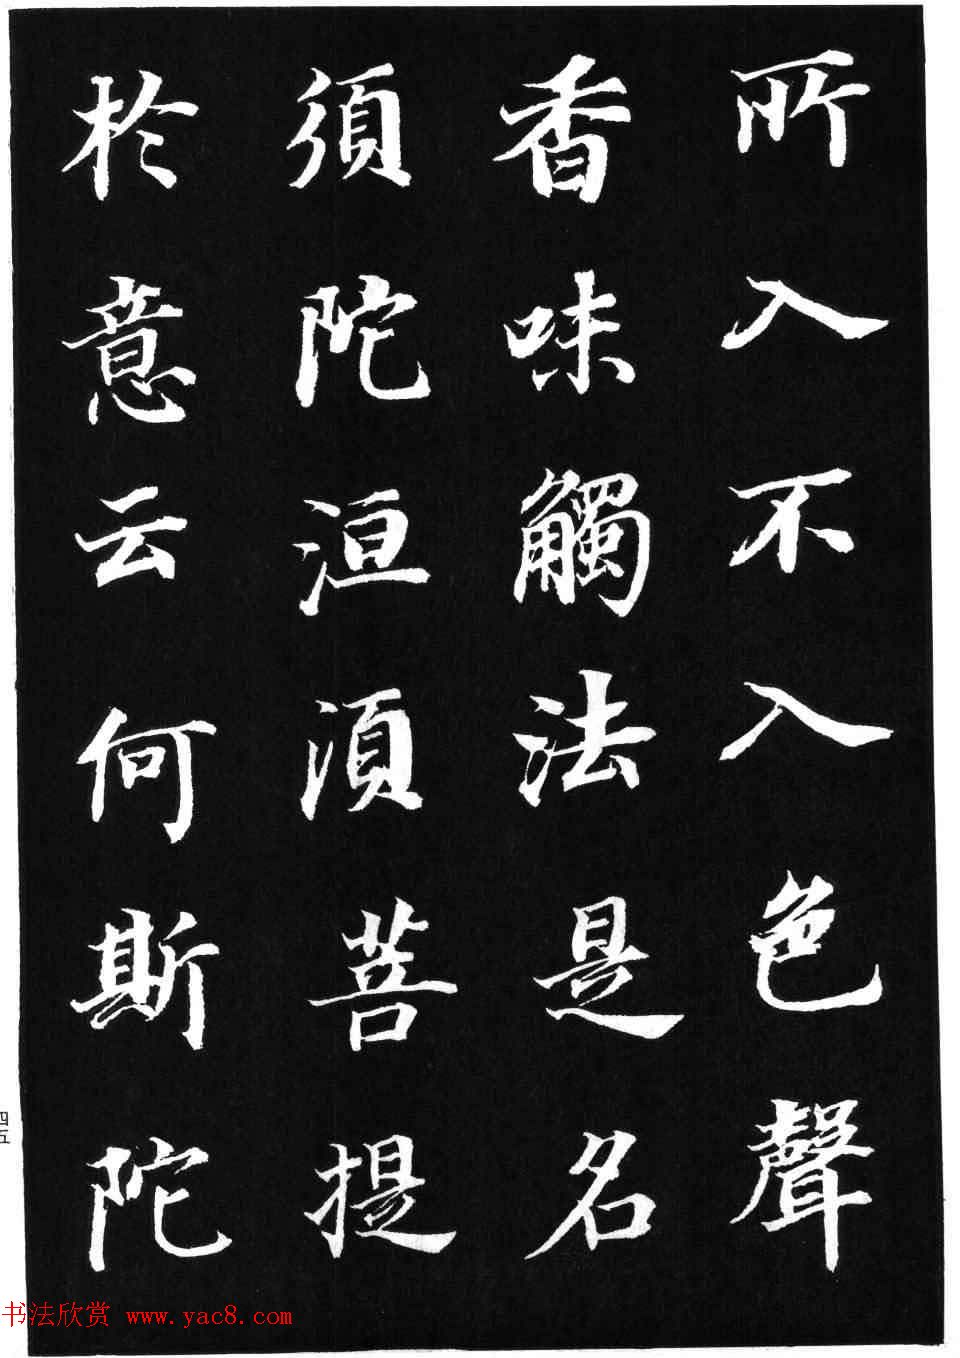 所入不入色聲
香味觸法是名
須陀洹須菩提
於意云何斯陀
四五
书法欣赏 www.yac8.com